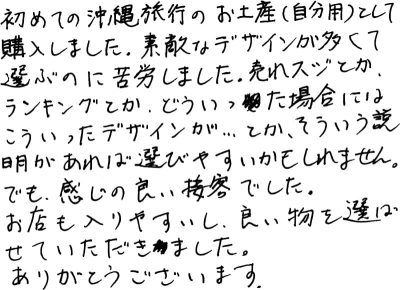 初めての沖縄旅行のお土産(自分用)として
購入しました。素敵なデザインが多くて
選ぶのに苦労しました。売れスジとか、
ランキングとか、どういった場合には
こういったデザインが…とか、そういう説
明があれば選びやすいかもしれません。
でも、感じの良い接客でした。
お店も入りやすいし、良い物を選ば
せていただきました。
ありがとうございます。